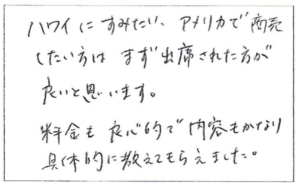 ハワイにすみたい、アメリカで商売
したい方は まず出席された方が
良いと思います。
料金も良心的で内容もかなり
具体的に教えてもらえました。